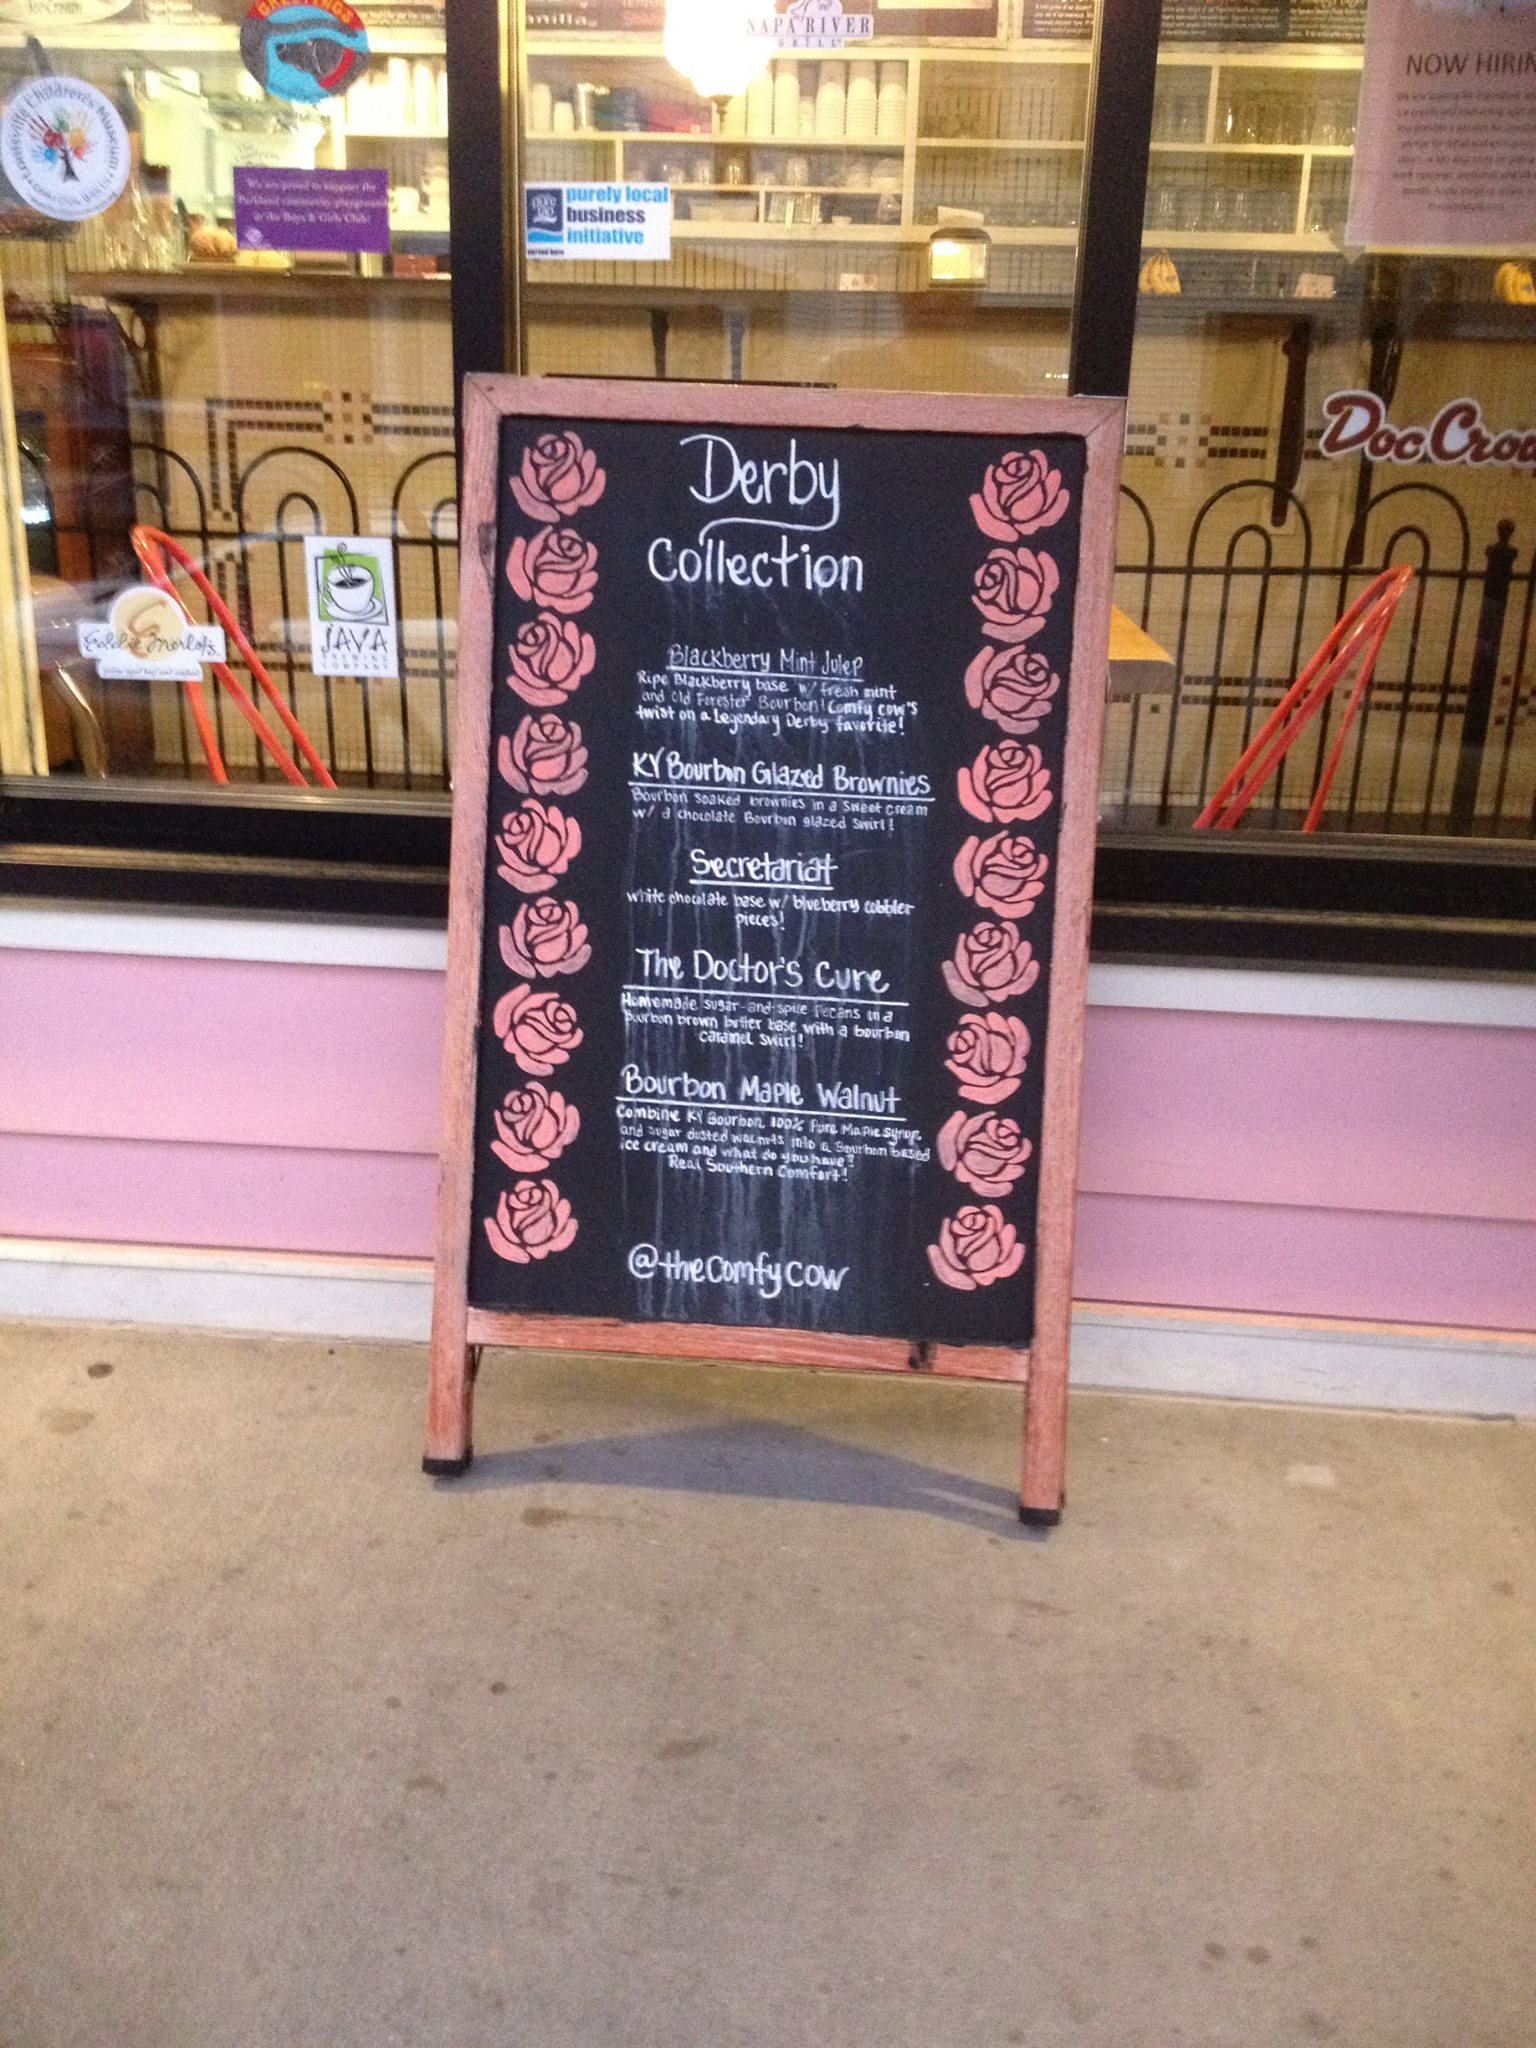 Ice Cream
GREETINGS
Vanilla
NAPA RIVER
GRILL
NOW HIRIN
Louisville Children's Museum
We are proud to support the
Parkland community playground
in the Boys & Girls Club!
purely local
business
initiative
Doc Crow
Eddie Merlot's
prime aged beef and seafood
JAVA
BREWING
COMPANY
Derby
Collection
Blackberry Mint Julep
Ripe Blackberry base w/ fresh mint
and Old Forester Bourbon! Comfy Cow's
twist on a Legendary Derby favorite!
KY Bourbon Glazed Brownies
Bourbon soaked brownies in a sweet cream
w/ a chocolate Bourbon glazed swirl!
Secretariat
white chocolate base w/ blueberry cobbler
pieces!
The Doctor's Cure
Homemade sugar-and-spice Pecans in a
Bourbon brown butter base with a bourbon
caramel swirl!
Bourbon Maple Walnut
Combine KY Bourbon, 100% Pure Maple syrup,
and sugar dusted walnuts into a Bourbon based
ice cream and what do you have?
Real Southern Comfort!
@thecomfycow